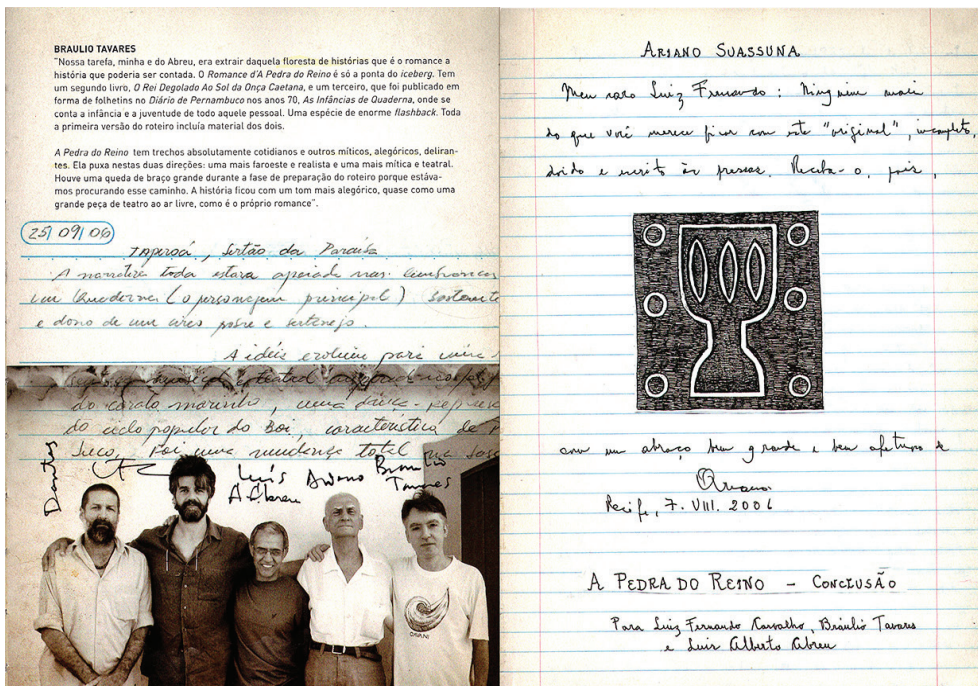 BRAULIO TAVARES
"Nossa tarefa, minha e do Abreu, era extrair daquela floresta de histórias que é o romance a
história que poderia ser contada. O Romance d'A Pedra do Reino é só a ponta do iceberg. Tem
um segundo livro, O Rei Degolado Ao Sol da Onça Caetana, e um terceiro, que foi publicado em
forma de folhetins no Diário de Pernambuco nos anos 70, As Infâncias de Quaderna, onde se
conta a infância e a juventude de todo aquele pessoal. Uma espécie de enorme flashback. Toda
a primeira versão do roteiro incluía material dos dois.
A Pedra do Reino tem trechos absolutamente cotidianos e outros míticos, alegóricos, deliran-
tes. Ela puxa nestas duas direções: uma mais faroeste e realista e uma mais mítica e teatral.
Houve uma queda de braço grande durante a fase de preparação do roteiro porque estáva-
mos procurando esse caminho. A história ficou com um tom mais alegórico, quase como uma
grande peça de teatro ao ar livre, como é o próprio romance".
25/09/06
Taperoá, Sertão da Paraíba
A narrativa toda estará apoiada nas
um Quaderna (o personagem principal)
e dono de um circo pobre e sertanejo.
A idéia evoluiu para uma
teatral
do cavalo marinho, uma
do ciclo popular do Boi, característica de
Foi uma mudança total na
Dantas
Luís
A. Abreu
Ariano
Braulio
Tavares
OAVANI
ARIANO SUASSUNA
Meu caro Luiz Fernando: Ninguém mais
do que você merece ficar com este "original", incompleto,
doido e escrito às pressas. Receba-o, pois,
com um abraço bem grande e bem afetuoso de
Ariano.
Recife, 7. VIII. 2006
A PEDRA DO REINO – CONCLUSÃO
Para Luiz Fernando Carvalho, Bráulio Tavares
e Luís Alberto Abreu